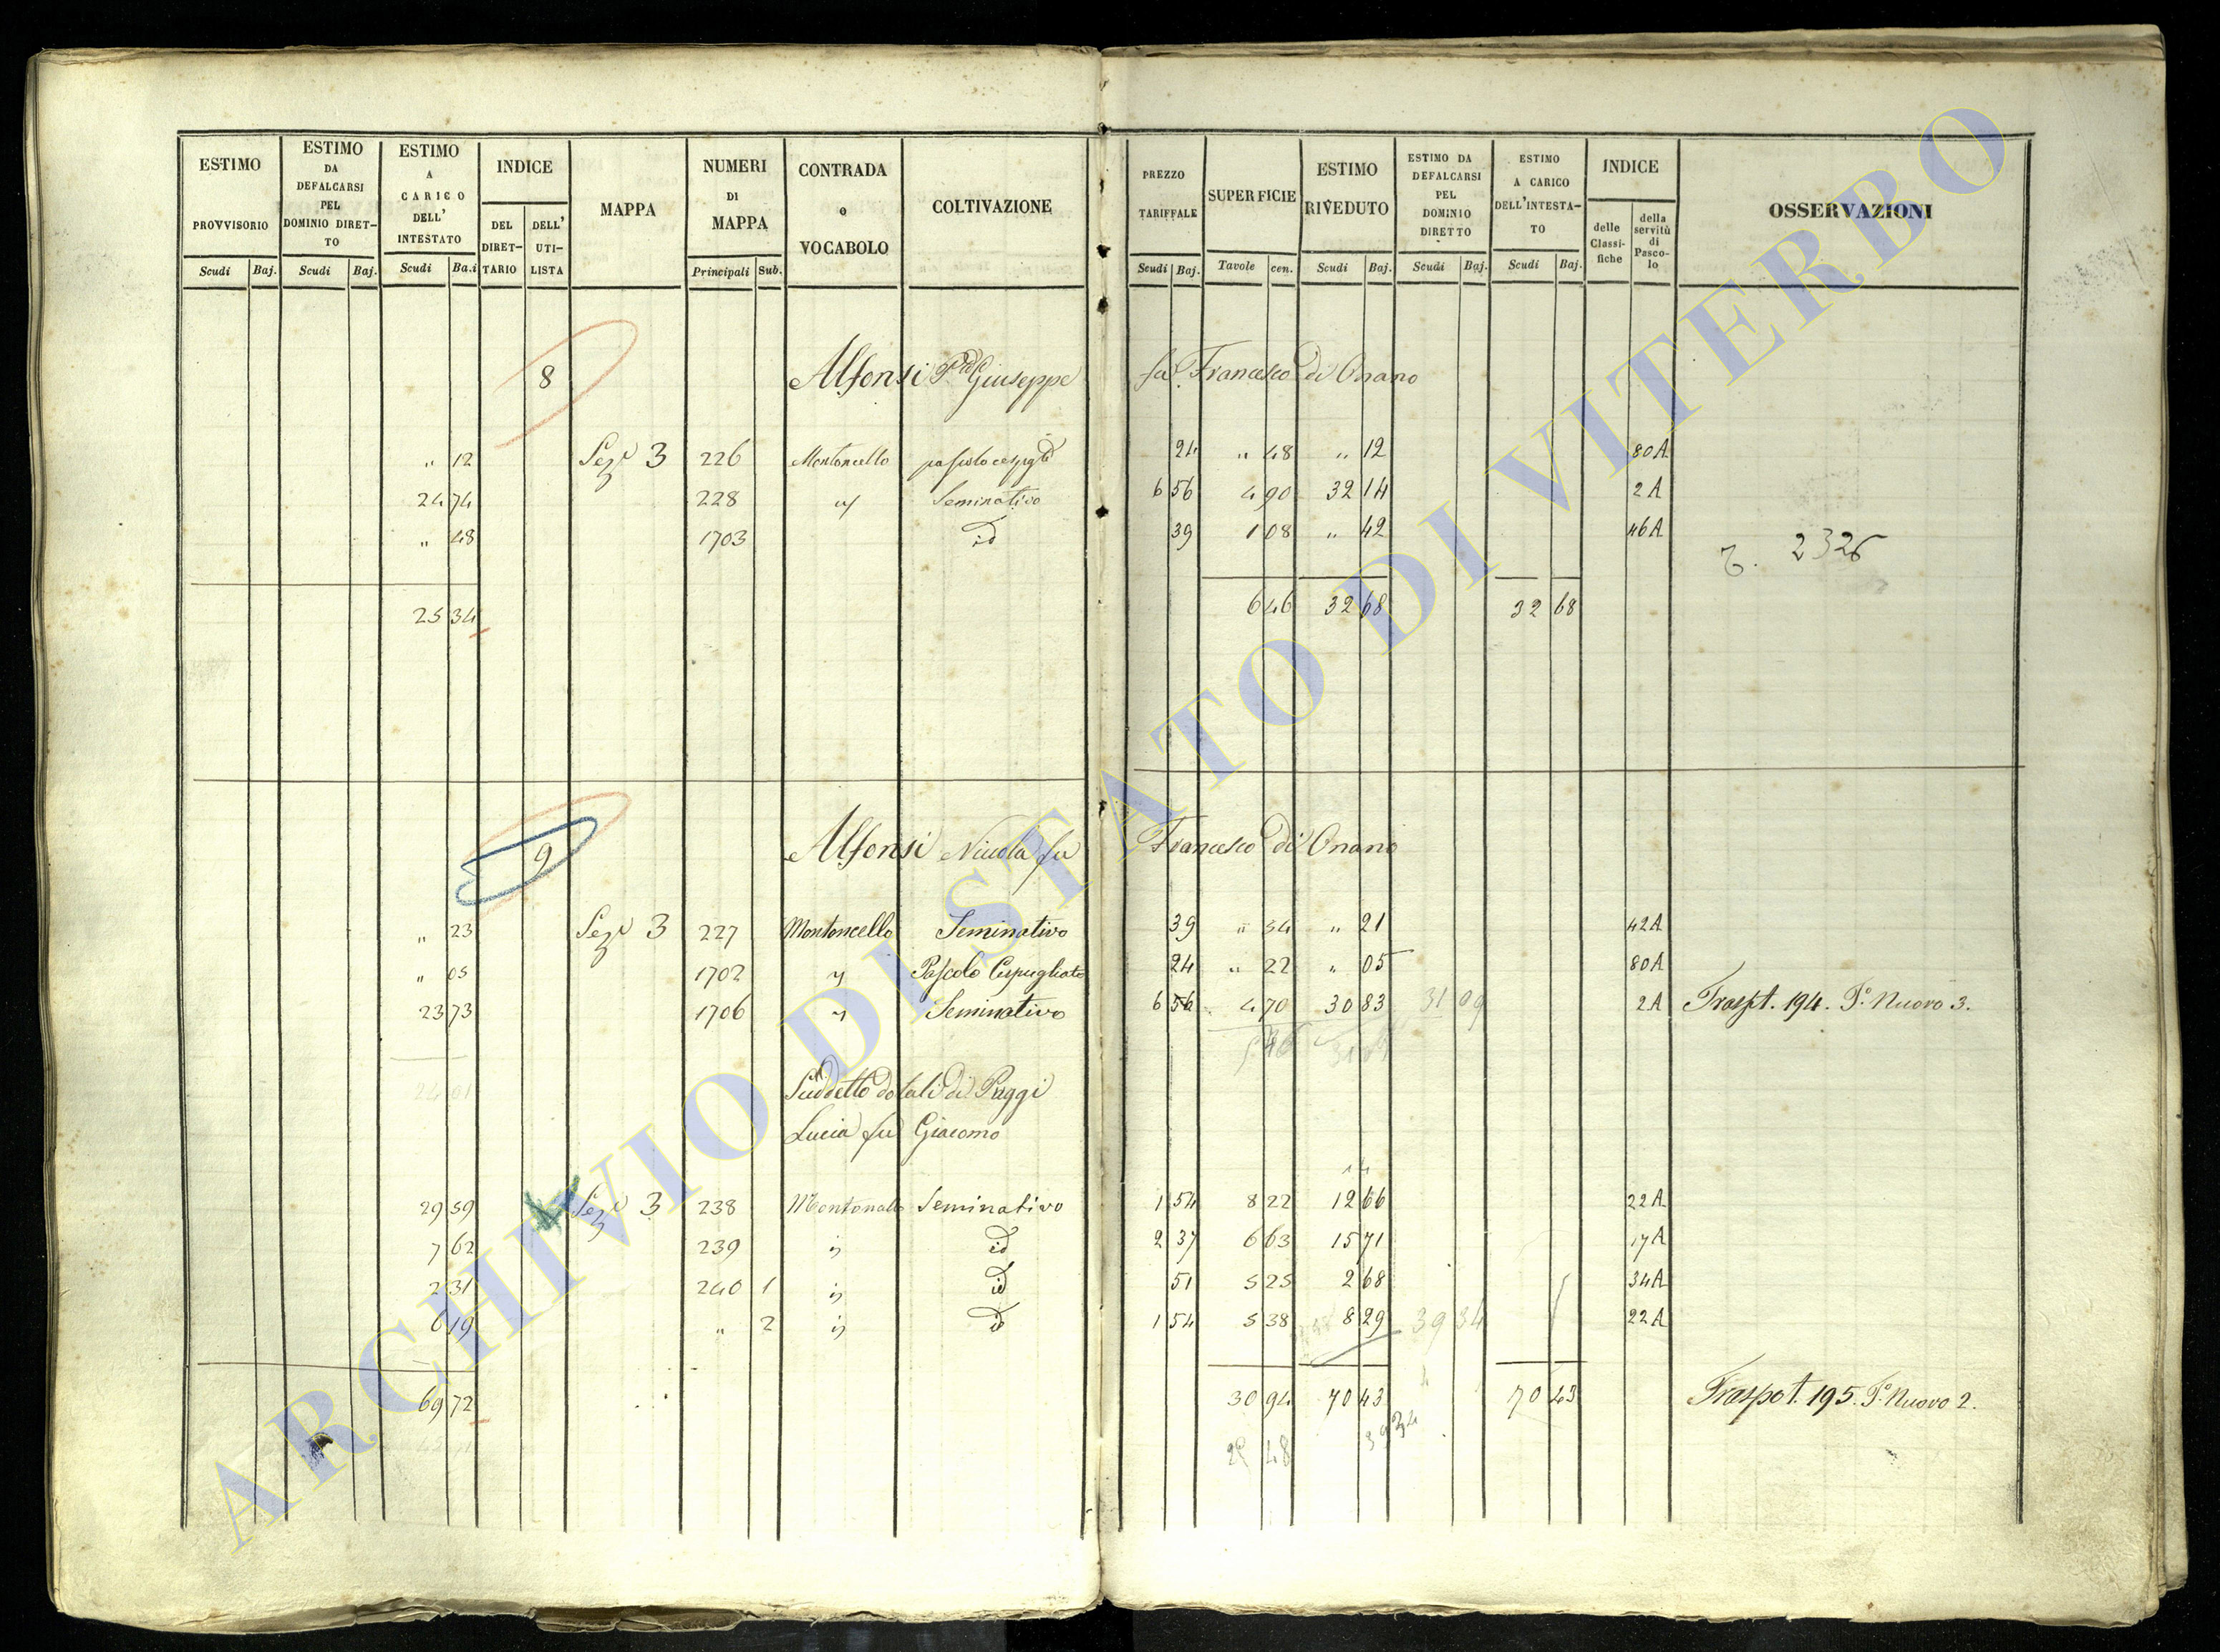 ESTIMO PROVVISORIO Scudi Baj.
ESTIMO DA DEFALCARSI PEL DOMINIO DIRET-TO Scudi Baj.
ESTIMO A CARICO DELL' INTESTATO Scudi Ba.i
INDICE DEL DIRET-TARIO DELL' UTI-LISTA
MAPPA
NUMERI DI MAPPA Principali Sub.
CONTRADA o VOCABOLO
COLTIVAZIONE
PREZZO TARIFFALE Scudi Baj.
SUPERFICIE Tavole cen.
ESTIMO RIVEDUTO Scudi Baj.
ESTIMO DA DEFALCARSI PEL DOMINIO DIRETTO Scudi Baj.
ESTIMO A CARICO DELL'INTESTA-TO Scudi Baj.
INDICE delle Classi-fiche della servitù di Pasco-lo
OSSERVAZIONI
8 Alfonsi Giuseppe fu Francesco di Onano
" 12 Seze 3 226 Montoncello 24 " 48 " 12 80A
24 74 228 Seminativo 6 56 4 90 32 14 2A
" 48 1703 id 39 1 08 " 42 46A
2326
25 34 6 46 32 68 32 68
9 Alfonsi Nicola fu Francesco di Onano
" 23 Seze 3 227 Montoncello Seminativo 39 " 54 " 21 42A
" 05 1702 " Pascolo Cespugliato 24 " 22 " 05 80A
23 73 1706 " Seminativo 6 56 4 70 30 83 31 09 2A Traspt. 194. P.º Nuovo 3.
24 01
Suddetto dotali di Paggi
Lucia fu Giacomo
29 59 Seze 3 238 Seminativo 1 54 8 22 12 66 22A
7 62 239 " id 2 37 6 63 15 71 17A
2 31 240 1 " id 51 5 25 2 68 34A
6 19 " 2 " id 1 54 5 38 8 29 39 34 22A
69 72 30 94 70 43 70 43 Traspot. 195. P.º Nuovo 2.
25 48 39 34
ARCHIVIO DI STATO DI VITERBO